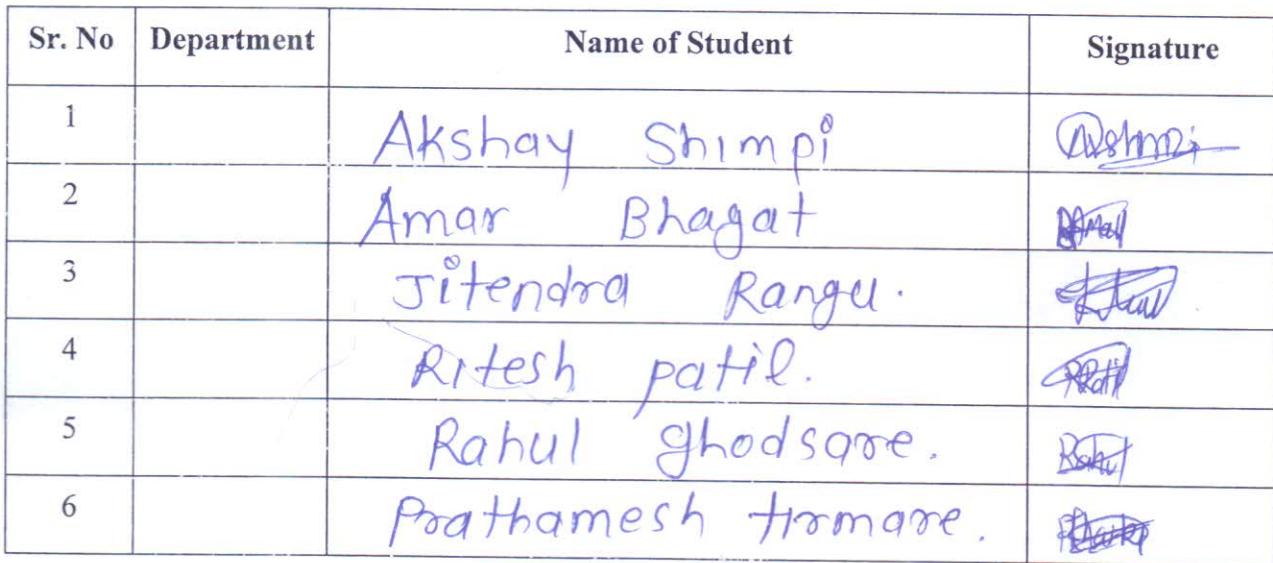 Sr. No Department Name of Student Signature
1 Akshay Shimpi
2 Amar Bhagat
3 Jitendra Rangu.
4 Ritesh patil.
5 Rahul ghodsare. Rahul
6 Prathamesh tirmare.